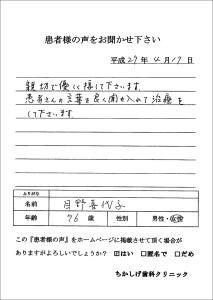 患者様の声をお聞かせ下さい
平成27年4月17日
親切で優しく接して下さいます。
患者さんの言葉を良く聞き入れて治療を
して下さいます。
ふりがな
名前
月野喜代子
年齢 76 歳 性別 男性・女性
この『患者様の声』をホームページに掲載させて頂く場合が
ありますがよろしいでしょうか? ☑はい □匿名で □だめ
ちかしげ歯科クリニック